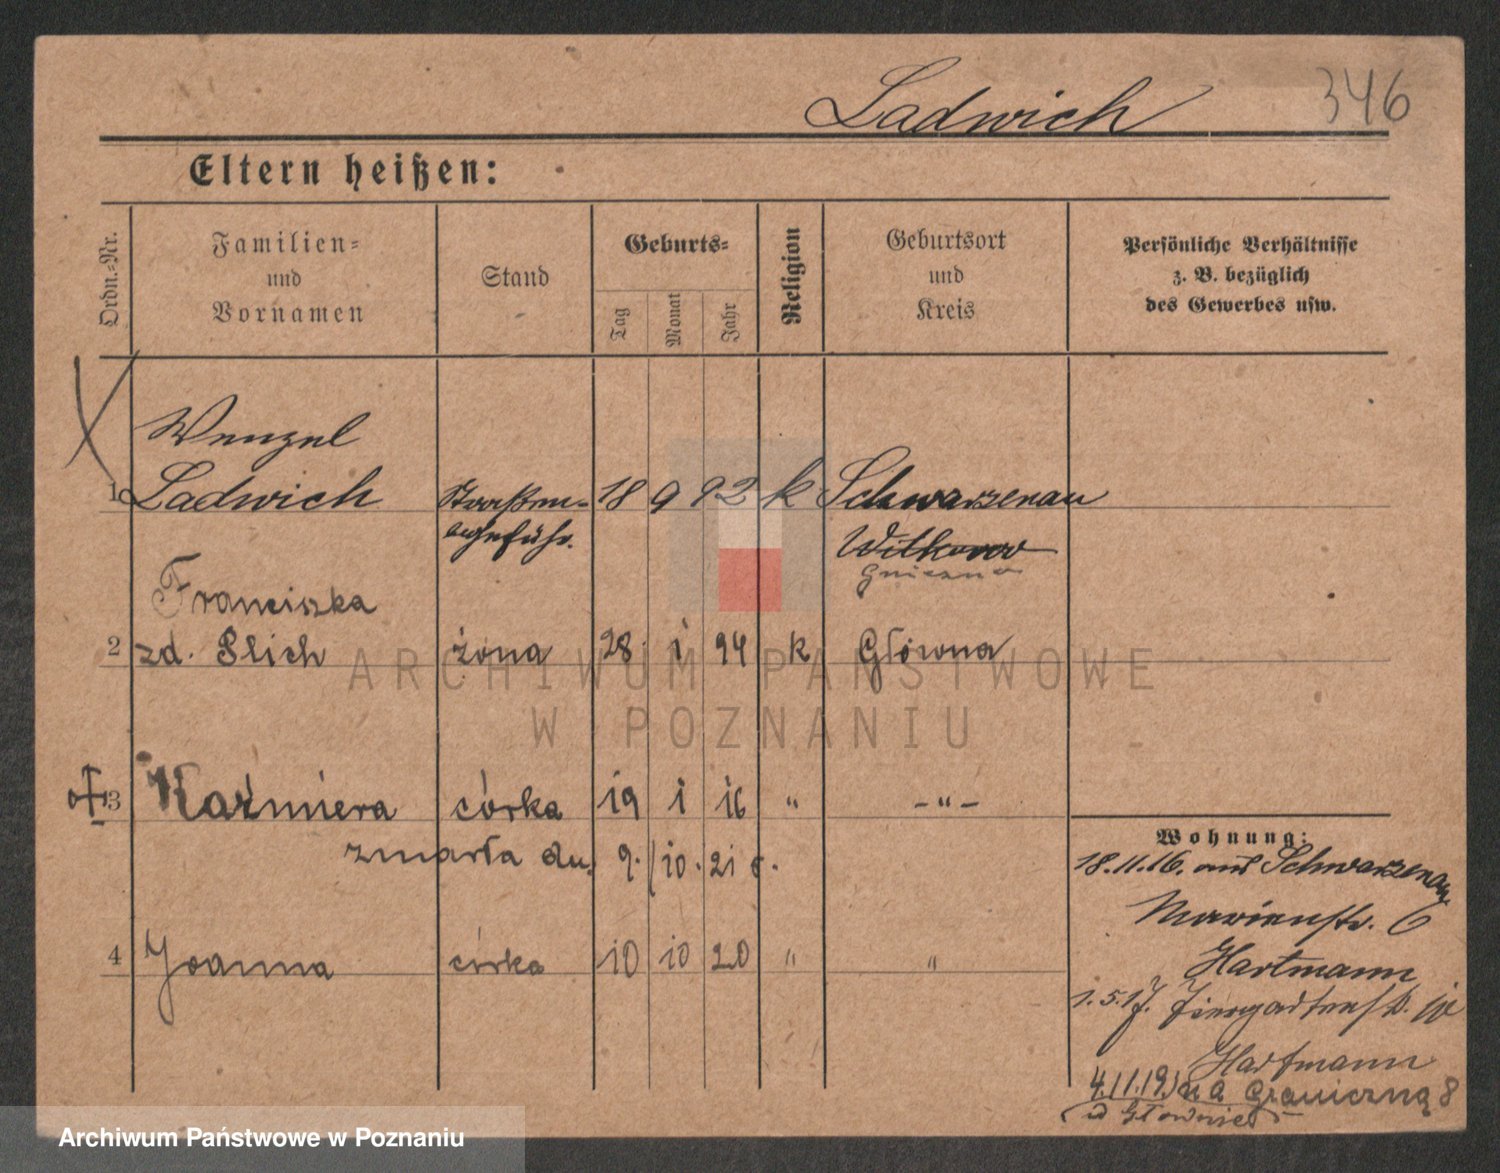 Ladwich 346
Eltern heißen:
Ordn.-Nr.
Familien-
und
Vornamen
Stand
Geburts-
Tag
Monat
Jahr
Religion
Geburtsort
und
Kreis
Persönliche Verhältnisse
z. B. bezüglich
des Gewerbes usw.
Wenzel
1 Ladwich Straßen- 18 9 92 k Schwarzenau
Witkowo
Gniezno
Franciszka
2 zd. Slich żona 28 1 94 k Główna
3 Kaźmiera córka 19 1 16 " -"-
zmarła dn. 9. 10. 21 r.
4 Joanna córka 10 10 20 " "
Wohnung:
18.11.16. aus Schwarzenau
Marienstr. 6
Hartmann
1.5.17.
Hartmann
Graniczną 8
ARCHIWUM PAŃSTWOWE
W POZNANIU
Archiwum Państwowe w Poznaniu